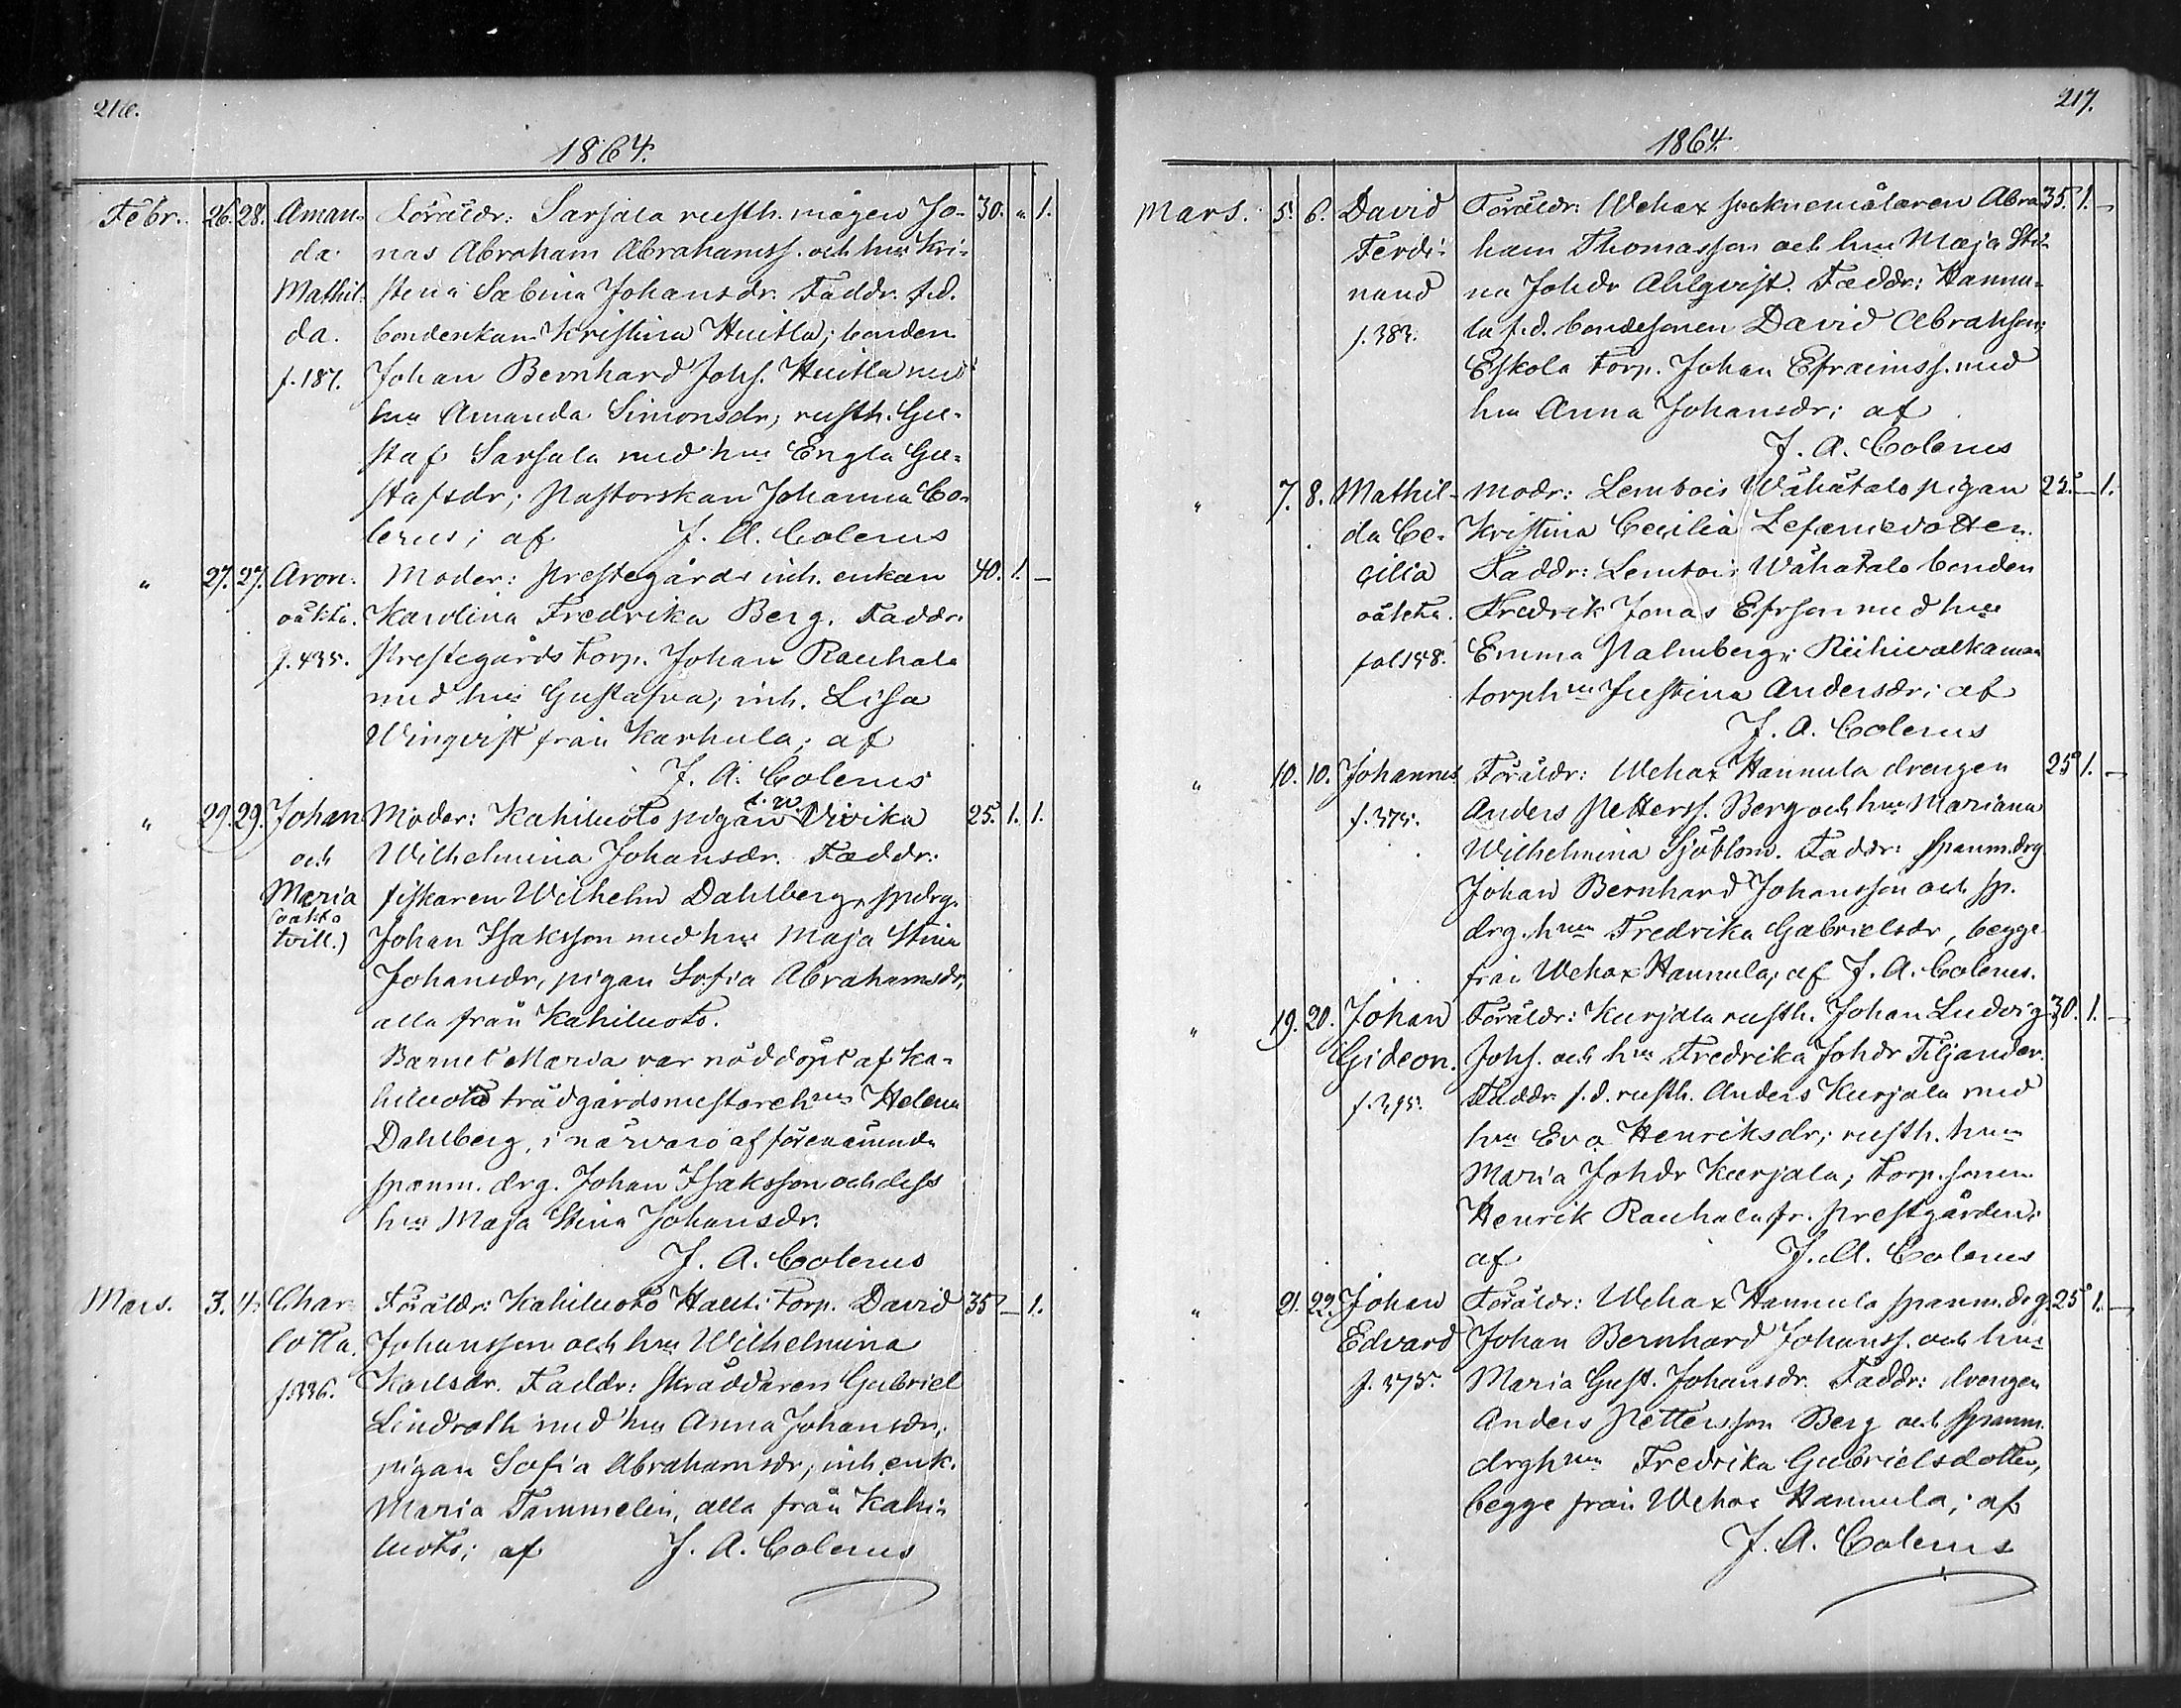 216.
1864.
Febr. 26. 28. Aman- Föräldr: Sarsala rusth. mågen Jo- 30. " 1.
da nas Abraham Abrahamss. och hu Kri-
Mathil- stina Sabina Johansdr. Faddr. f.d.
da. bondenkan Kristina Huitla; bonden
f. 187. Johan Bernhard Johs. Huitla med
hu Amanda Simonsdr; rusth. Gu-
staf Sarsala med hu Engla Gu-
stafsdr; Pastorskan Johanna Co-
lerus; af J. A. Colerus
" 27. 27. Aron. Moder: Prestegårds inh. enkan 40. 1. —
oäkta. Karolina Fredrika Berg. Faddr.
f. 435. Prestegårds torp. Johan Rauhala
med hu Gustafva; inh. Lisa
Winqvist från Karhula; af
J. A. Colerus
" 29. 29. Johan Moder: Kahiluoto pigan Vivika 25. 1. 1.
och Wilhelmina Johansdr. Faddr:
Maria fiskaren Wilhelm Dahlberg, spdrg.
(oäkta
tvill.) Johan Isaksson med hu Maja Stina
Johansdr, pigan Sofia Abrahamsdr,
alla från Kahiluoto.
Barnet Maria var nöddöpt af Ka-
hiluoto trädgårdsmestareh Helena
Dahlberg, i närvaro af förenämnda
spanm. drg. Johan Isaksson och dess
hu Maja Stina Johansdr.
J. A. Colerus
Mars. 3. 4. Char- Föräldr: Kahiluoto torp. David 35 — 1.
lotta. Johansson och hu Wilhelmina
f. 336. Karlsdr. Faddr: skräddaren Gabriel
Lindroth med hu Anna Johansdr,
pigan Sofia Abrahamsdr, inh. enk.
Maria Tammelin, alla från Kahi-
luoto; af J. A. Colerus
217.
1864.
Mars. 5. 6. David Föräldr: Wehax socknemålaren Abra- 35. 1. —
Ferdi- ham Thomasson och hu Maja Sti-
nand na Johdr Ahlqvist. Faddr: Hannu-
f. 383. la f.d. bondesonen David Abrahson;
Eskola torp. Johan Efraimss. med
hu Anna Johansdr; af
J. A. Colerus
" 7. 8. Mathil- Modr: Lembois Wähätalo pigan 23. — 1.
da Ce- Kristina Cecilia
cilia Faddr: Lembois Wähätalo bonden
oäkta. Fredrik Jonas Efrson med hu
fol 158. Emma Palmberg; Riihivalkaman
torph Justina Andersdr; af
J. A. Colerus
" 10. 10. Johannes Föräldr: Wehax Hannula drengen 25 1. —
f. 375. Anders Petterss. Berg och hu Mariana
Wilhelmina Sjöblom. Faddr: spanm.drg
Johan Bernhard Johansson och sp.
drg. hu Fredrika Gabrielsdr, begge
från Wehax Hannula; af J. A. Colerus.
" 19. 20. Johan Föräldr: Kurjala rusth. Johan Ludvig 30. 1. —
Gideon. Johs. och hu Fredrika Johdr Tiljander.
f. 395. Faddr f.d. rusth. Anders Kurjala med
hu Eva Henriksdr; rusth. hu
Maria Johdr Kurjala; torp. sonen
Henrik Rauhala fr. prestgården;
af J. A. Colerus
" 21. 22. Johan Föräldr: Wehax Hannula spanm. drg. 25 1. —
Edvard Johan Bernhard Johanss. och hu
f. 375. Maria Gust. Johansdr. Faddr: drengen
Anders Pettersson Berg och spanm.
drgh Fredrika Gabrielsdotter,
begge från Wehax Hannula; af
J. A. Colerus